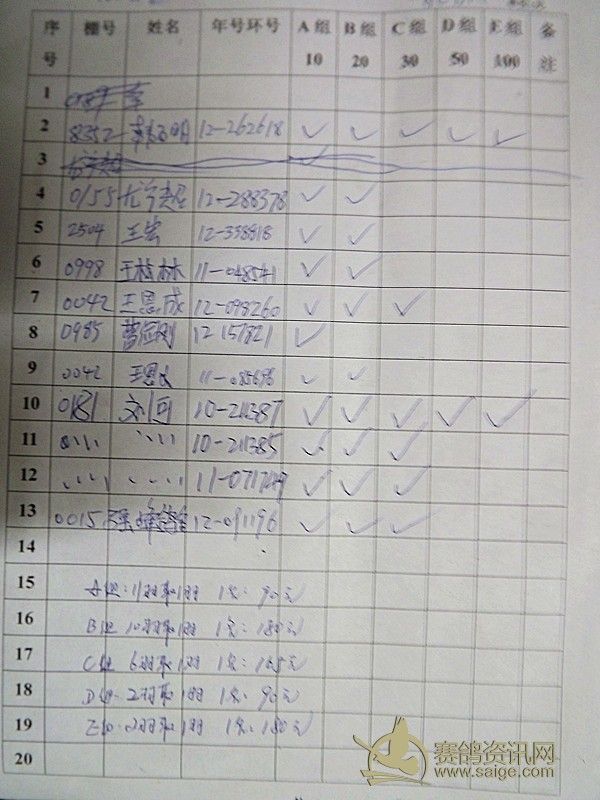 序号 棚号 姓名 年号环号 A组10 B组20 C组30 D组50 E组100 备注
1
2 8352 12-262618 ✓ ✓ ✓ ✓ ✓
3
4 0155 12-288378 ✓ ✓
5 2504 王宏 12-338818 ✓ ✓
6 0998 王桂林 11-048541 ✓ ✓
7 0042 王恩成 12-098260 ✓ ✓ ✓
8 0985 12 151821 ✓
9 0042 王恩成 11-085696 ✓ ✓
10 0181 刘可 10-211387 ✓ ✓ ✓ ✓ ✓
11 〃 〃 10-211385 ✓ ✓ ✓
12 〃 〃 11-071749 ✓ ✓ ✓
13 0015 12-091196 ✓ ✓ ✓
14
15 A组:11羽取1羽 1名:90元
16 B组 10羽取1羽 1名:180元
17 C组 6羽取1羽 1名:165元
18 D组 2羽取1羽 1名:90元
19 E组 2羽取1羽 1名:180元
20
赛鸽资讯网
www.saige.com